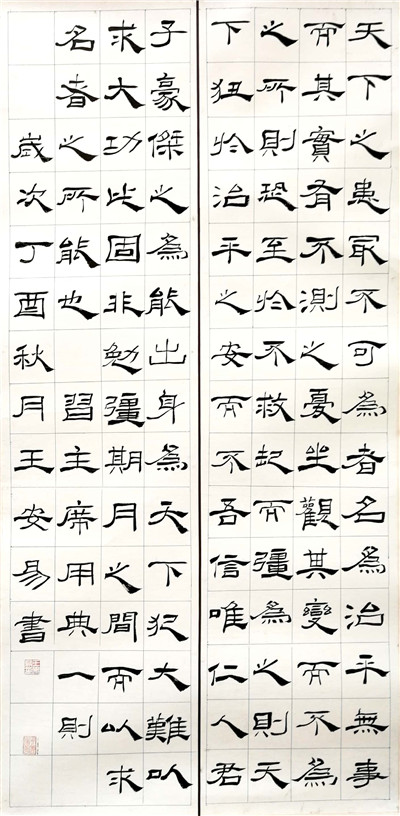 天下之患冣不可為者名為治平無事
而其實有不測之憂坐觀其變而不為
之所則恐至於不救起而彊為之則天
下狃於治平之安而不吾信唯仁人君
子豪傑之為能出身為天下犯大難以
求大功此固非勉彊期月之間而以求
名者之所能也 習主席用典一則
歲次丁酉秋月王安易書